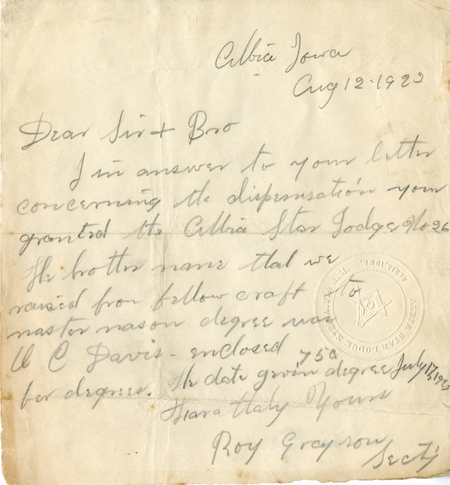 Albia Iowa
Aug 12-1923
Dear Sir & Bro
I in answer to your letter
concerning the dispensation your
granted the Albia Star Lodge No 26
The brother name that we
raised from fellow craft to
master mason degree was
C Davis - enclosed 75¢
for degree. The date given degree July 17, 192
Yours
Roy Grayson
Secty